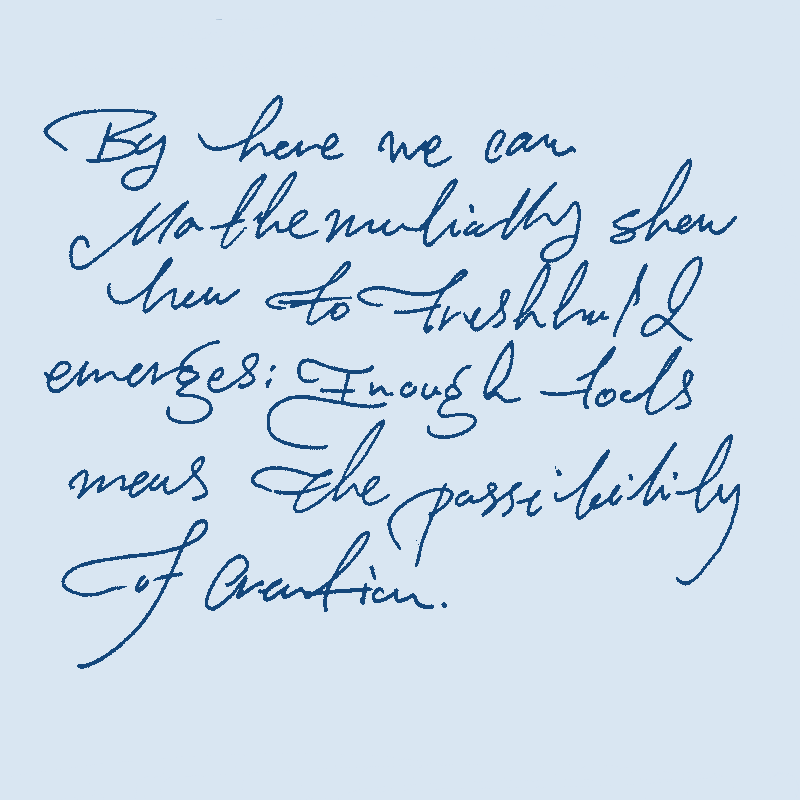 By here we can
Mathematically show
how to treshhold
emerges: Enough tools
means the possibility
of creation.